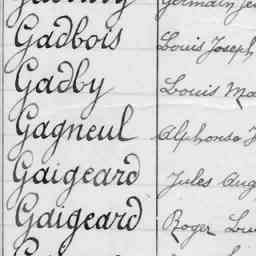 Germain
Gadbois Louis Joseph
Gadby Louis
Gagneul Alphonse
Gaigeard Jules
Gaigeard Roger